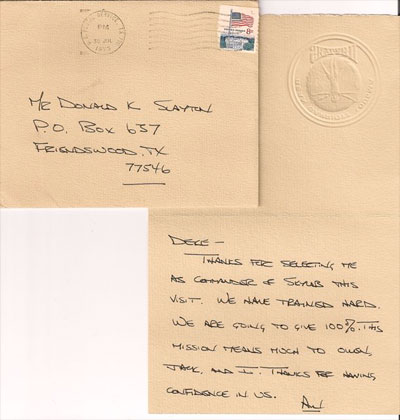 PM
8c
MR DONALD K SLAYTON
P.O. BOX 637
FRIENDSWOOD, TX
77546
DEKE —
THANKS FOR SELECTING ME
AS COMMANDER OF SKYLAB THIS
VISIT. WE HAVE TRAINED HARD.
WE ARE GOING TO GIVE 100%. THIS
MISSION MEANS MUCH TO OWEN,
JACK, AND I. THANKS FOR HAVING
CONFIDENCE IN US.
AL